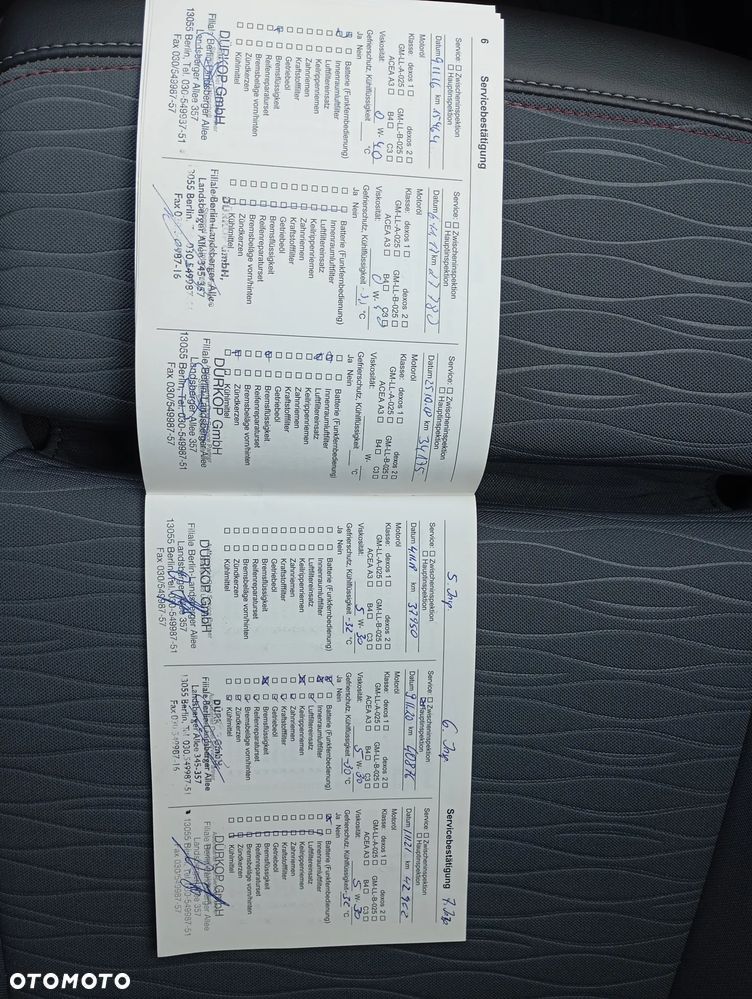 6 Servicebestätigung
Service: ☐ Zwischeninspektion
☐ Hauptinspektion
Datum 9.11.16 km 15464
Motoröl
Klasse: dexos 1 ☐ dexos 2 ☐
GM-LL-A-025 ☐ GM-LL-B-025 ☐
ACEA A3 ☐ B4 ☐ C3 ☐
Viskosität: 0 W- 40
Gefrierschutz, Kühlflüssigkeit °C
Ja Nein
Batterie (Funkfernbedienung)
Innenraumluftfilter
Luftfiltereinsatz
Keilrippenriemen
Zahnriemen
Kraftstofffilter
Getriebeöl
Bremsflüssigkeit
Reifenreparaturset
Bremsbeläge vorn/hinten
Zündkerzen
Kühlmittel
DÜRKOP GmbH
Filiale Berlin-Landsberger Allee
Landsberger Allee 357
13055 Berlin, Tel. 030-549987-51
Fax 030/549987-57
Service: ☐ Zwischeninspektion
☐ Hauptinspektion
Datum km
Motoröl
Klasse: dexos 1 ☐ dexos 2 ☐
GM-LL-A-025 ☐ GM-LL-B-025 ☐
ACEA A3 ☐ B4 ☐ C3
Viskosität: 0 W-
Gefrierschutz, Kühlflüssigkeit °C
Ja Nein
Batterie (Funkfernbedienung)
Innenraumluftfilter
Luftfiltereinsatz
Keilrippenriemen
Zahnriemen
Kraftstofffilter
Getriebeöl
Bremsflüssigkeit
Reifenreparaturset
Bremsbeläge vorn/hinten
Zündkerzen
Kühlmittel
GmbH,
Filiale Berlin-Landsberger Allee
Landsberger Allee 345-357
Service: ☐ Zwischeninspektion
☐ Hauptinspektion
Datum 25.10.18 km 34135
Motoröl
Klasse: dexos 1 ☐ dexos 2 ☐
GM-LL-A-025 ☐ GM-LL-B-025 ☐
ACEA A3 ☐ B4 ☐ C3 ☐
Viskosität: W-
Gefrierschutz, Kühlflüssigkeit °C
Ja Nein
Batterie (Funkfernbedienung)
Innenraumluftfilter
Luftfiltereinsatz
Keilrippenriemen
Zahnriemen
Kraftstofffilter
Getriebeöl
Bremsflüssigkeit
Reifenreparaturset
Bremsbeläge vorn/hinten
Zündkerzen
Kühlmittel
DÜRKOP GmbH
Filiale Berlin-Landsberger Allee
Landsberger Allee 357
13055 Berlin, Tel. 030-549987-51
Fax 030/549987-57
5. Insp
Service: ☐ Zwischeninspektion
☐ Hauptinspektion
Datum km 37950
Motoröl
Klasse: dexos 1 ☐ dexos 2 ☐
GM-LL-A-025 ☐ GM-LL-B-025 ☐
ACEA A3 ☐ B4 ☐ C3 ☐
Viskosität: 5 W- 30
Gefrierschutz, Kühlflüssigkeit -32 °C
Ja Nein
Batterie (Funkfernbedienung)
Innenraumluftfilter
Luftfiltereinsatz
Keilrippenriemen
Zahnriemen
Kraftstofffilter
Getriebeöl
Bremsflüssigkeit
Reifenreparaturset
Bremsbeläge vorn/hinten
Zündkerzen
Kühlmittel
DÜRKOP GmbH
Filiale Berlin-Landsberger Allee
Landsberger Allee 357
13055 Berlin, Tel. 030-549987-51
Fax 030/549987-57
6. Insp
Service: ☐ Zwischeninspektion
☒ Hauptinspektion
Datum 9.11.20 km 40876
Motoröl
Klasse: dexos 1 ☐ dexos 2 ☐
GM-LL-A-025 ☐ GM-LL-B-025 ☐
ACEA A3 ☐ B4 ☐ C3 ☐
Viskosität: 5 W- 30
Gefrierschutz, Kühlflüssigkeit -30 °C
Ja Nein
Batterie (Funkfernbedienung)
Innenraumluftfilter
Luftfiltereinsatz
Keilrippenriemen
Zahnriemen
Kraftstofffilter
Getriebeöl
Bremsflüssigkeit
Reifenreparaturset
Bremsbeläge vorn/hinten
Zündkerzen
Kühlmittel
GmbH
Filiale Berlin-Landsberger Allee
Landsberger Allee 345-357
13055 Berlin, Tel. 030-549987-51
Servicebestätigung 7. Insp
Service: ☐ Zwischeninspektion
☐ Hauptinspektion
Datum km 42902
Motoröl
Klasse: dexos 1 ☐ dexos 2 ☐
GM-LL-A-025 ☐ GM-LL-B-025 ☐
ACEA A3 ☐ B4 ☐ C3 ☐
Viskosität: 5 W- 30
Gefrierschutz, Kühlflüssigkeit °C
Ja Nein
Batterie (Funkfernbedienung)
Innenraumluftfilter
Luftfiltereinsatz
Keilrippenriemen
Zahnriemen
Kraftstofffilter
Getriebeöl
Bremsflüssigkeit
Reifenreparaturset
Bremsbeläge vorn/hinten
Zündkerzen
Kühlmittel
DÜRKOP GmbH
Filiale Berlin-Landsberger Allee
Landsberger Allee 357
13055 Berlin, Tel. 030-549987-51
Fax 030/549987-57
OTOMOTO